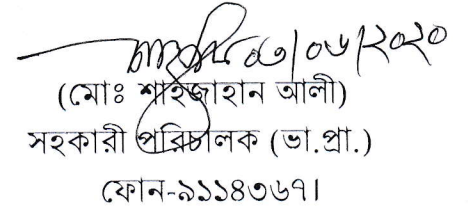 ০৩/০৬/২০২০
(মোঃ শাহজাহান আলী)
সহকারী পরিচালক (ভা.প্রা.)
ফোন-৯১১৪৩৬৭।